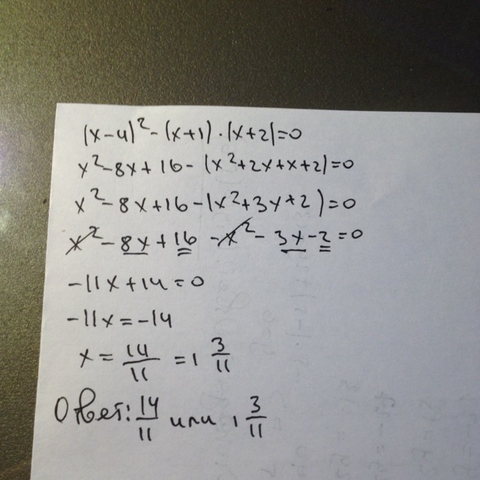 (x-4)²-(x+1)·(x+2)=0
x²-8x+16-(x²+2x+x+2)=0
x²-8x+16-(x²+3x+2)=0
x²-8x+16-x²-3x-2=0
-11x+14=0
-11x=-14
x=14/11=1 3/11
Ответ: 14/11 или 1 3/11